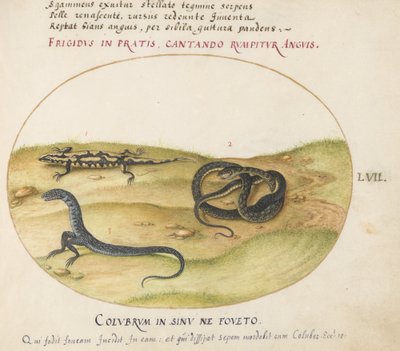 Squameus exuitur stellato tegmine serpens
Pelle renascente, rursus redeunte Iuuenta
Reptat hians anguis, per sibila guttura pandens;~
FRIGIDVS IN PRATIS, CANTANDO RVMPITVR ANGVIS.
1
2
LVII.
1
COLVBRVM IN SINV NE FOVETO.
Qui fodit foueam incidit in eam: et qui dissipat sepem mordebit eum Coluber. Eccl. 10.